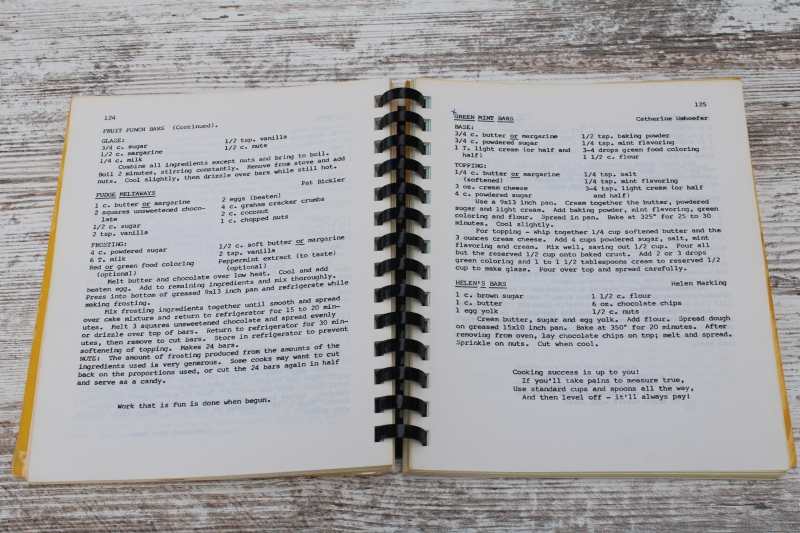 124
FRUIT PUNCH BARS (Continued).
GLAZE:
3/4 c. sugar 1/2 tsp. vanilla
1/2 c. margarine 1/2 c. nuts
1/4 c. milk
Combine all ingredients except nuts and bring to boil.
Boil 2 minutes, stirring constantly. Remove from stove and add
nuts. Cool slightly, then drizzle over bars while still hot.
Pat Bickler
FUDGE MELTAWAYS
1 c. butter or margarine 2 eggs (beaten)
2 squares unsweetened choco- 4 c. graham cracker crumbs
late 2 c. coconut
1/2 c. sugar 1 c. chopped nuts
2 tsp. vanilla
FROSTING:
4 c. powdered sugar 1/2 c. soft butter or margarine
6 T. milk 2 tsp. vanilla
Red or green food coloring Peppermint extract (to taste)
(optional) (optional)
Melt butter and chocolate over low heat. Cool and add
beaten egg. Add to remaining ingredients and mix thoroughly.
Press into bottom of greased 9x13 inch pan and refrigerate while
making frosting.
Mix frosting ingredients together until smooth and spread
over cake mixture and return to refrigerator for 15 to 20 min-
utes. Melt 3 squares unsweetened chocolate and spread evenly
or drizzle over top of bars. Return to refrigerator for 30 min-
utes, then remove to cut bars. Store in refrigerator to prevent
softening of topping. Makes 24 bars.
NOTE: The amount of frosting produced from the amounts of the
ingredients used is very generous. Some cooks may want to cut
back on the proportions used, or cut the 24 bars again in half
and serve as a candy.
Work that is fun is done when begun.
125
GREEN MINT BARS Catherine Umhoefer
BASE:
3/4 c. butter or margarine 1/2 tsp. baking powder
3/4 c. powdered sugar 1/4 tsp. mint flavoring
1 T. light cream (or half and 3-4 drops green food coloring
half) 1 1/2 c. flour
TOPPING:
1/4 c. butter or margarine 1/4 tsp. salt
(softened) 1/4 tsp. mint flavoring
3 oz. cream cheese 3-4 tsp. light cream (or half
4 c. powdered sugar and half)
Use a 9x13 inch pan. Cream together the butter, powdered
sugar and light cream. Add baking powder, mint flavoring, green
coloring and flour. Spread in pan. Bake at 325° for 25 to 30
minutes. Cool slightly.
For topping - Whip together 1/4 cup softened butter and the
3 ounces cream cheese. Add 4 cups powdered sugar, salt, mint
flavoring and cream. Mix well, saving out 1/2 cup. Pour all
but the reserved 1/2 cup onto baked crust. Add 2 or 3 drops
green coloring and 1 to 1 1/2 tablespoons cream to reserved 1/2
cup to make glaze. Pour over top and spread carefully.
HELEN'S BARS Helen Marking
1 c. brown sugar 1 1/2 c. flour
1 c. butter 6 oz. chocolate chips
1 egg yolk 1/2 c. nuts
Cream butter, sugar and egg yolk. Add flour. Spread dough
on greased 15x10 inch pan. Bake at 350° for 20 minutes. After
removing from oven, lay chocolate chips on top; melt and spread.
Sprinkle on nuts. Cut when cool.
Cooking success is up to you!
If you'll take pains to measure true,
Use standard cups and spoons all the way,
And then level off - it'll always pay!